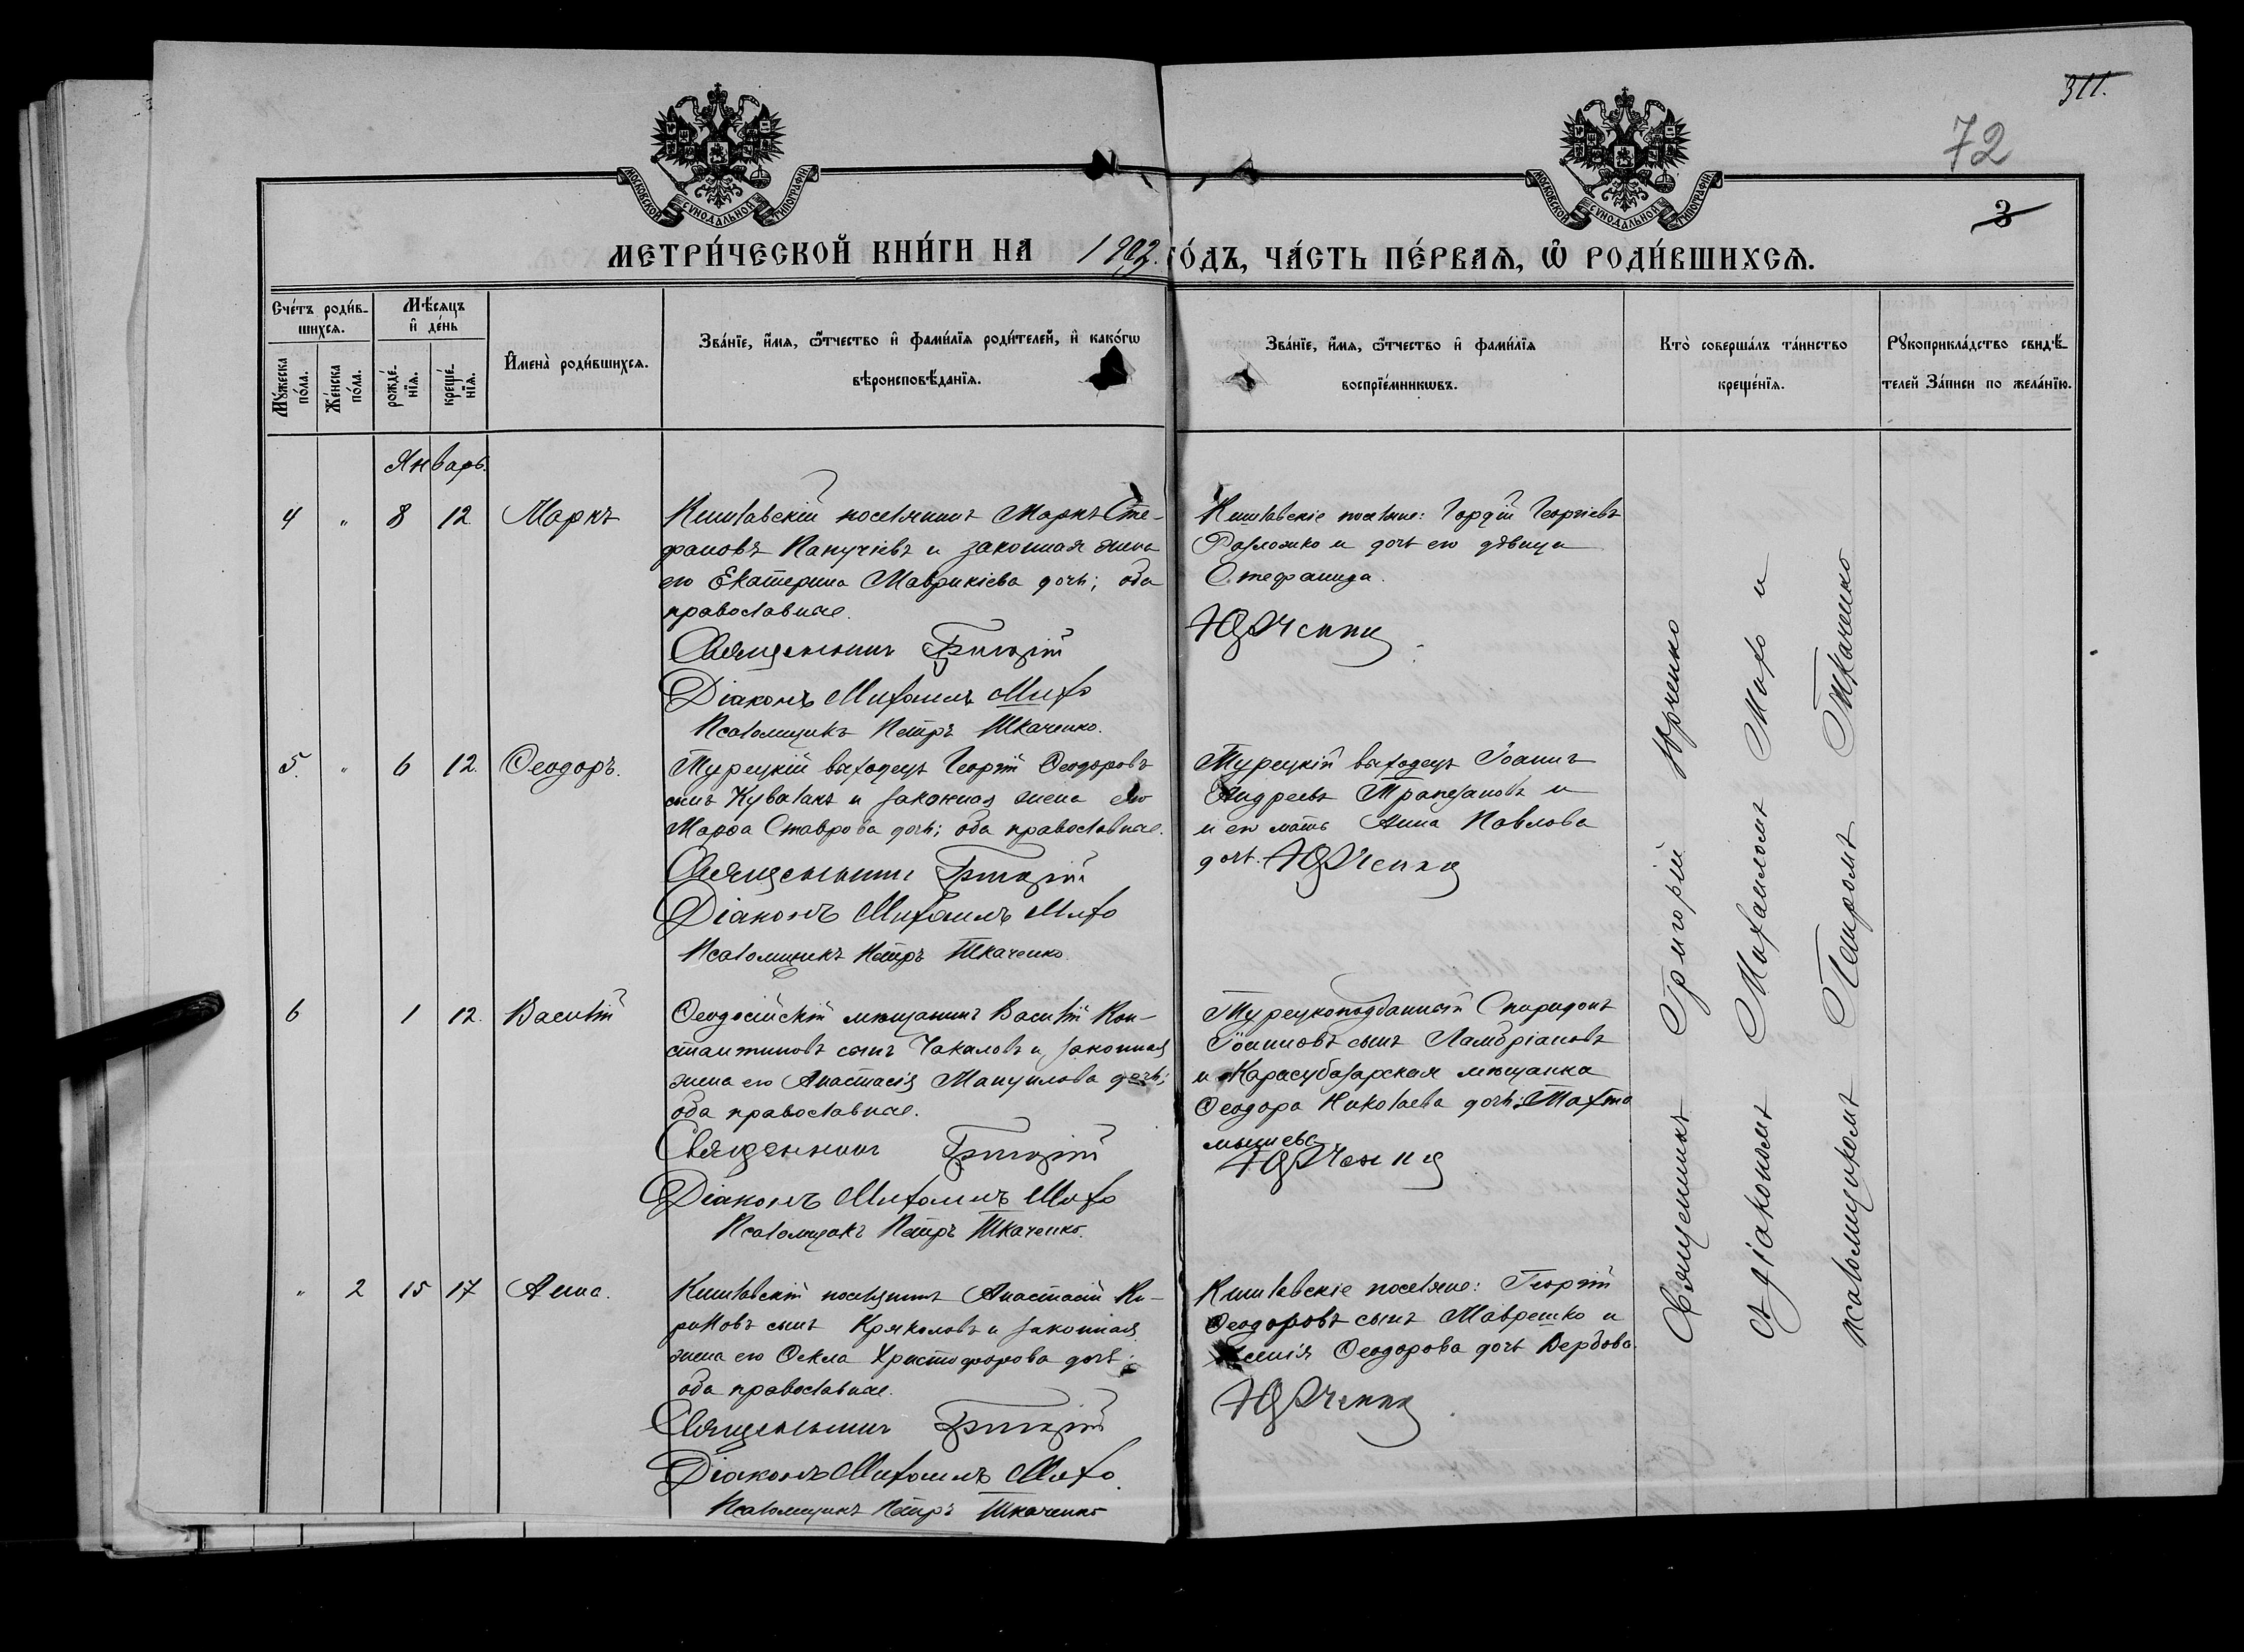 311.
72
3
МОСКОВСКОЙ СѴНОДАЛЬНОЙ ТИПОГРАФІИ
МОСКОВСКОЙ СѴНОДАЛЬНОЙ ТИПОГРАФІИ
МЕТРИ́ЧЕСКОЙ КНИ́ГИ НА 1902 ГО́ДЪ, ЧА́СТЬ ПЕ́РВАѦ, Ѽ РОДИ́ВШИХСѦ.
Сче́тъ роди́в-
шихсѧ.
Мꙋ́жеска по́ла.
Же́нска по́ла.
Мѣ́сѧцъ
и҆ де́нь
рожде́-
нїѧ.
креще́-
нїѧ.
И҆мена̀ роди́вшихсѧ.
Зва́нїе, и҆́мѧ, ѻ҆́тчество и҆ фами́лїѧ роди́телей, и҆ како́гѡ
вѣроисповѣ́данїѧ.
Зва́нїе, и҆́мѧ, ѻ҆́тчество и҆ фами́лїѧ
воспрїе́мникѡвъ.
Кто̀ соверша́лъ та́инство
креще́нїѧ.
Рꙋкоприкла́дство свидѣ́-
телей За́писи по жела́нїю.
Январь.
4 " 8 12 Маркъ
Кишлавскій поселянинъ Маркъ Сте-
фановъ Папучіевъ и законная жена
его Екатерина Маврикіева дочь; оба
православные.
Священникъ Григорій Юрченко
Діаконъ Михаилъ Михо
Псаломщикъ Петръ Ткаченко.
Кишлавскіе поселяне: Гордій Георгіевъ
Разложко и дочь его дѣвица
Стефанида.
5. " 6 12. Ѳеодоръ.
Турецкій выходецъ Георгій Ѳеодоровъ
сынъ Кувалакъ и законная жена его
Марѳа Ставрова дочь; оба православные.
Священникъ Григорій Юрченко
Діаконъ Михаилъ Михо
Псаломщикъ Петръ Ткаченко.
Турецкій выходецъ Іоаннъ
Андреевъ Трапезановъ и
и его мать Анна Павлова
дочь.
6 1 12. Василій
Ѳеодосійскій мѣщанинъ Василій Кон-
стантиновъ сынъ Чакаловъ и законная
жена его Анастасія Мануилова дочь;
оба православные.
Священникъ Григорій Юрченко
Діаконъ Михаилъ Михо
Псаломщикъ Петръ Ткаченко.
Турецкоподданный Спиридонъ
Іоанновъ сынъ Ламбріановъ
и Карасубазарская мѣщанка
Ѳеодора Николаева дочь Тохта
мышева
" 2 15 17 Анна.
Кишлавскій поселянинъ Анастасій Ки-
рилловъ сынъ Кряколовъ и законная
жена его Ѳекла Христофорова дочь;
оба православные.
Священникъ Григорій Юрченко
Діаконъ Михаилъ Михо.
Псаломщикъ Петръ Ткаченко
Кишлавскіе поселяне: Георгій
Ѳеодоровъ сынъ Маврешко и
Ѳеодорова дочь Вербова.
Священникъ Григорій Юрченко
съ діакономъ Михаиломъ Михо и
псаломщикомъ Петромъ Ткаченко